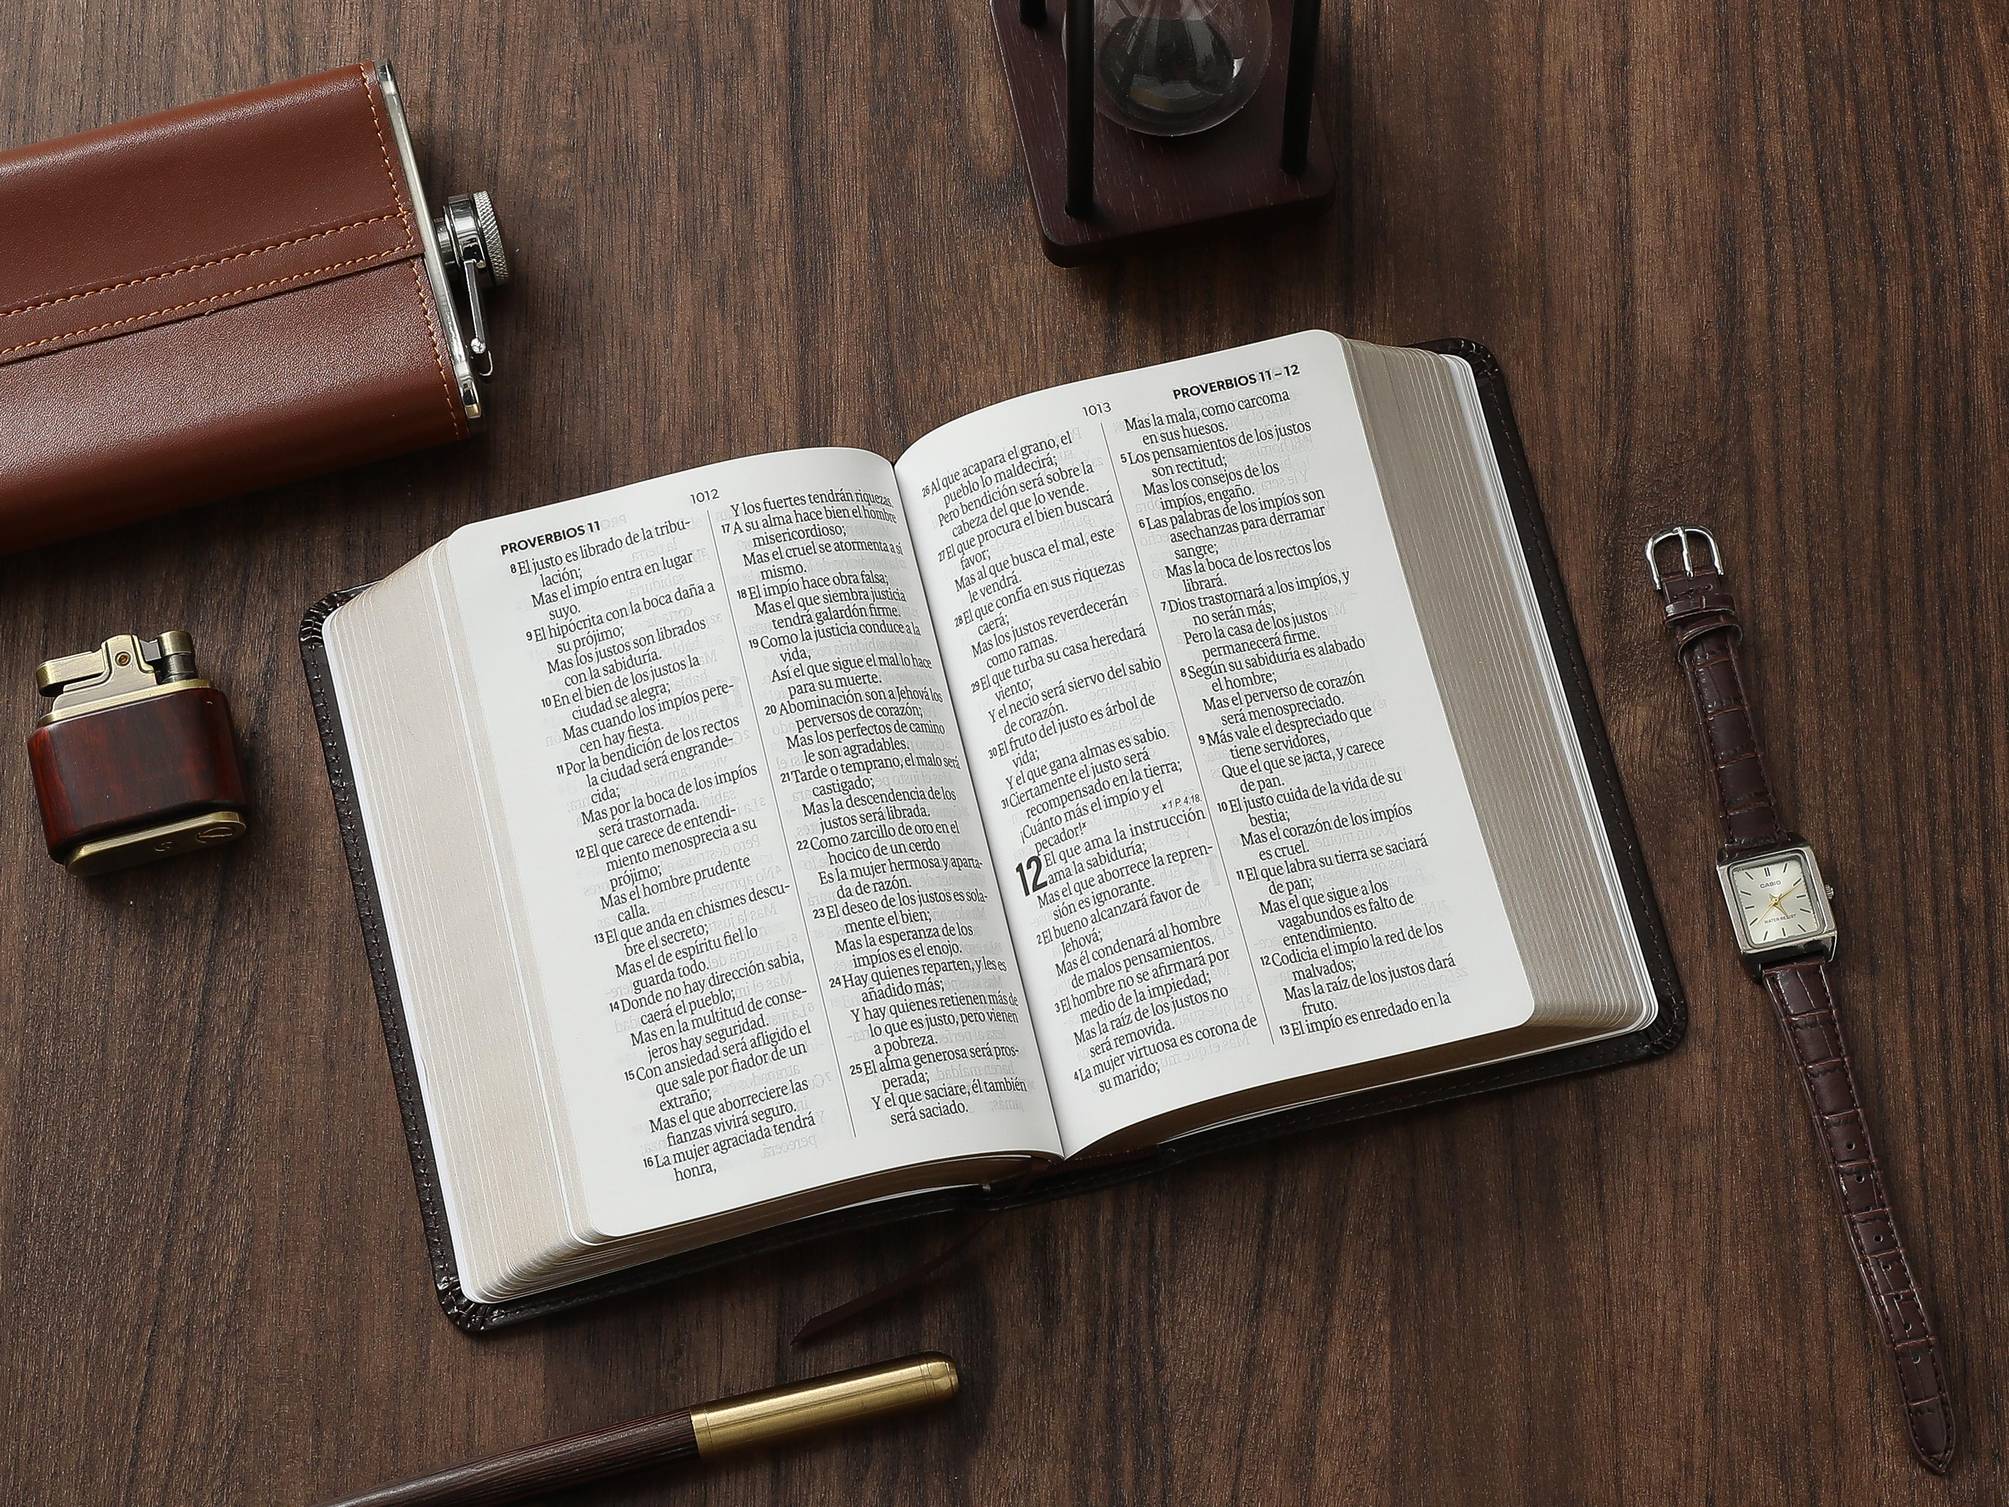 PROVERBIOS 11
1012
8 El justo es librado de la tribu-
lación;
Mas el impío entra en lugar
suyo.
9 El hipócrita con la boca daña a
su prójimo;
Mas los justos son librados
con la sabiduría.
10 En el bien de los justos la
ciudad se alegra;
Mas cuando los impíos pere-
cen hay fiesta.
11 Por la bendición de los rectos
la ciudad será engrande-
cida;
Mas por la boca de los impíos
será trastornada.
12 El que carece de entendi-
miento menosprecia a su
prójimo;
Mas el hombre prudente
calla.
13 El que anda en chismes descu-
bre el secreto;
Mas el de espíritu fiel lo
guarda todo.
14 Donde no hay dirección sabia,
caerá el pueblo;
Mas en la multitud de conse-
jeros hay seguridad.
15 Con ansiedad será afligido el
que sale por fiador de un
extraño;
Mas el que aborreciere las
fianzas vivirá seguro.
16 La mujer agraciada tendrá
honra,
Y los fuertes tendrán riquezas.
17 A su alma hace bien el hombre
misericordioso;
Mas el cruel se atormenta a sí
mismo.
18 El impío hace obra falsa;
Mas el que siembra justicia
tendrá galardón firme.
19 Como la justicia conduce a la
vida,
Así el que sigue el mal lo hace
para su muerte.
20 Abominación son a Jehová los
perversos de corazón;
Mas los perfectos de camino
le son agradables.
21 Tarde o temprano, el malo será
castigado;
Mas la descendencia de los
justos será librada.
22 Como zarcillo de oro en el
hocico de un cerdo
Es la mujer hermosa y aparta-
da de razón.
23 El deseo de los justos es sola-
mente el bien;
Mas la esperanza de los
impíos es el enojo.
24 Hay quienes reparten, y les es
añadido más;
Y hay quienes retienen más de
lo que es justo, pero vienen
a pobreza.
25 El alma generosa será pros-
perada;
Y el que saciare, él también
será saciado.
1013
PROVERBIOS 11 – 12
26 Al que acapara el grano, el
pueblo lo maldecirá;
Pero bendición será sobre la
cabeza del que lo vende.
27 El que procura el bien buscará
favor;
Mas al que busca el mal, este
le vendrá.
28 El que confía en sus riquezas
caerá;
Mas los justos reverdecerán
como ramas.
29 El que turba su casa heredará
viento;
Y el necio será siervo del sabio
de corazón.
30 El fruto del justo es árbol de
vida;
Y el que gana almas es sabio.
31 Ciertamente el justo será
recompensado en la tierra;
¡Cuánto más el impío y el
pecador!x
x 1 P. 4.18.
12 El que ama la instrucción
ama la sabiduría;
Mas el que aborrece la repren-
sión es ignorante.
2 El bueno alcanzará favor de
Jehová;
Mas él condenará al hombre
de malos pensamientos.
3 El hombre no se afirmará por
medio de la impiedad;
Mas la raíz de los justos no
será removida.
4 La mujer virtuosa es corona de
su marido;
Mas la mala, como carcoma
en sus huesos.
5 Los pensamientos de los justos
son rectitud;
Mas los consejos de los
impíos, engaño.
6 Las palabras de los impíos son
asechanzas para derramar
sangre;
Mas la boca de los rectos los
librará.
7 Dios trastornará a los impíos, y
no serán más;
Pero la casa de los justos
permanecerá firme.
8 Según su sabiduría es alabado
el hombre;
Mas el perverso de corazón
será menospreciado.
9 Más vale el despreciado que
tiene servidores,
Que el que se jacta, y carece
de pan.
10 El justo cuida de la vida de su
bestia;
Mas el corazón de los impíos
es cruel.
11 El que labra su tierra se saciará
de pan;
Mas el que sigue a los
vagabundos es falto de
entendimiento.
12 Codicia el impío la red de los
malvados;
Mas la raíz de los justos dará
fruto.
13 El impío es enredado en la
CASIO
WATER RESIST